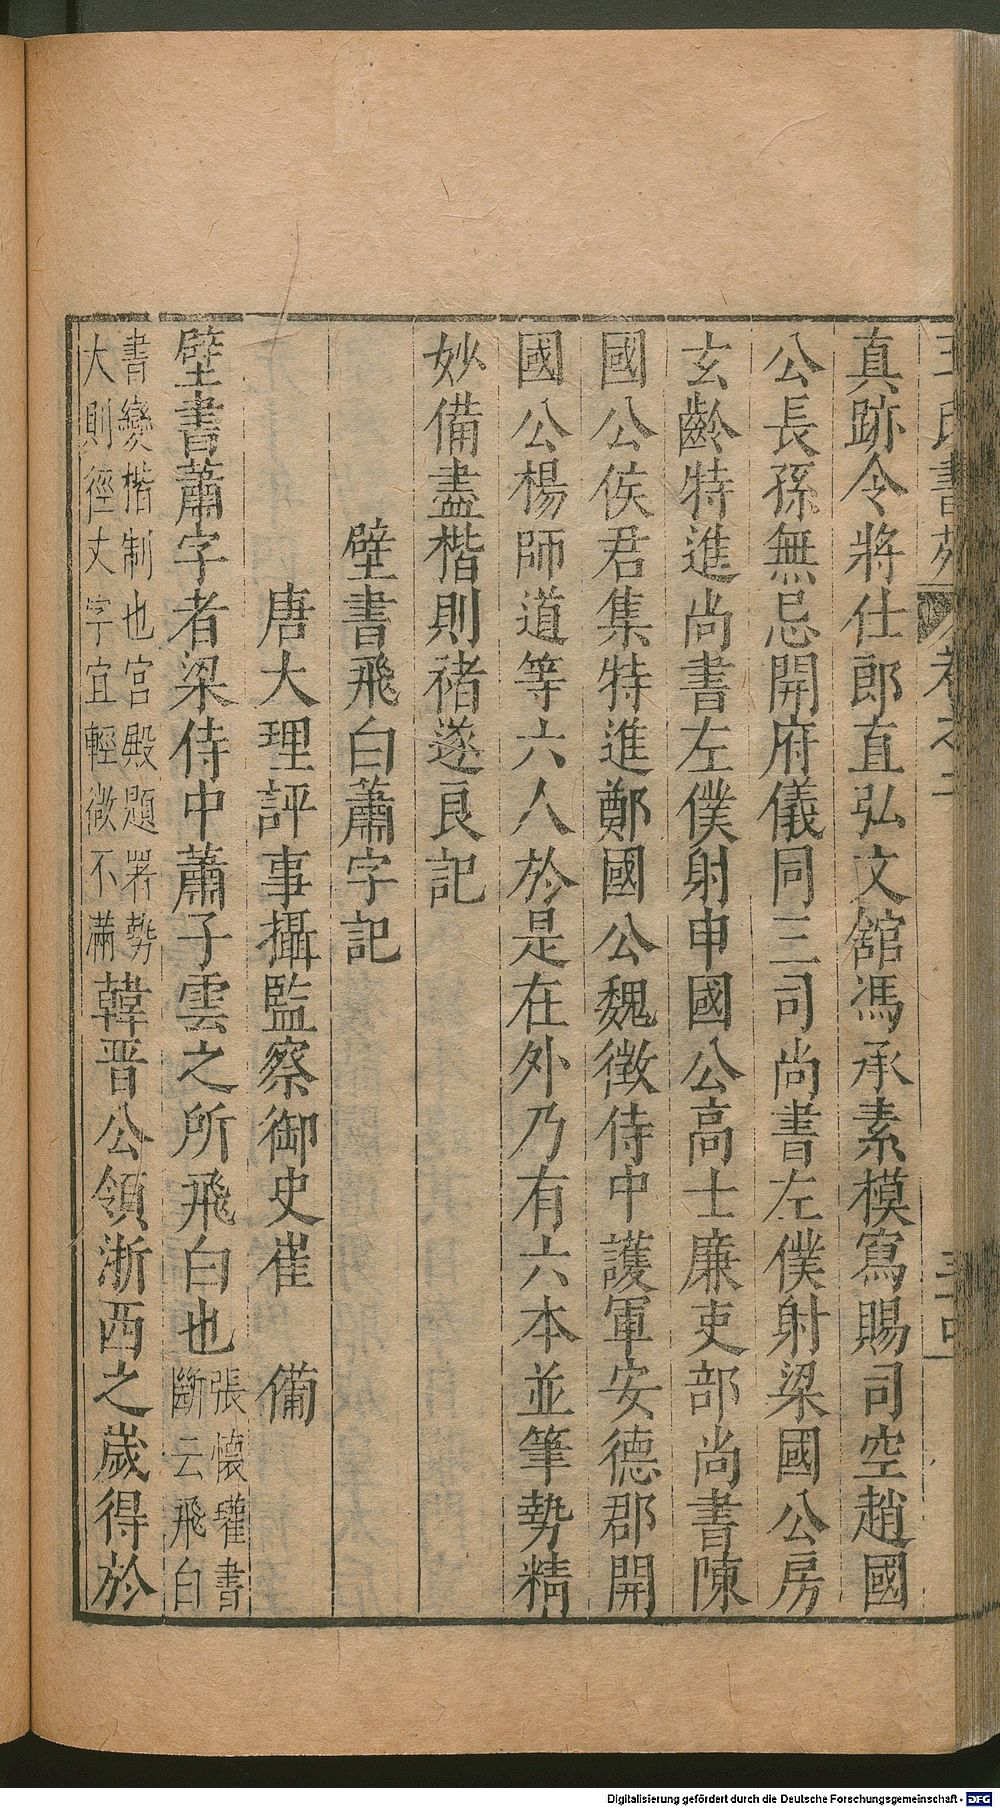 王氏書苑 卷之二
真跡令將仕郎直弘文舘馮承素模寫賜司空趙國
公長孫無忌開府儀同三司尚書左僕射梁國公房
玄齡特進尚書左僕射申國公高士廉吏部尚書陳
國公侯君集特進鄭國公魏徵侍中護軍安德郡開
國公楊師道等六人於是在外乃有六本並筆勢精
妙備盡楷則禇遂良記
壁書飛白蕭字記
唐大理評事攝監察御史崔 備
壁書蕭字者梁侍中蕭子雲之所飛白也張懷瓘書
斷云飛白
書變楷制也宮殿題署勢
大則徑丈字宜輕微不滿韓晋公領浙西之歲得於
Digitalisierung gefördert durch die Deutsche Forschungsgemeinschaft - DFG